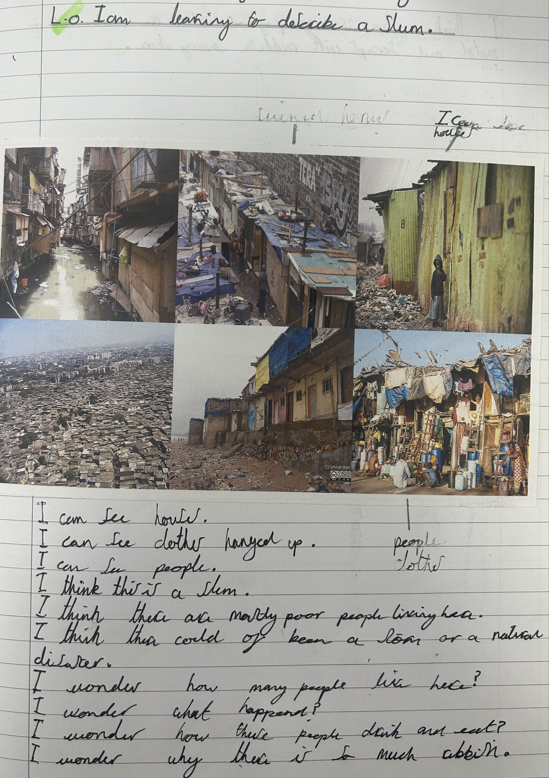 L.o. I am learning to describe a slum.
I can see
houses
I can see house.
I can see clothes hanged up.
I can see people.
I think this is a slum.
I think there are mostly poor people living here.
I think there could of been a or a natural
disaster.
I wonder how many people live here?
I wonder what happend?
I wonder how these people drink and eat?
I wonder why there is so much rubbish.
people
clothes
8